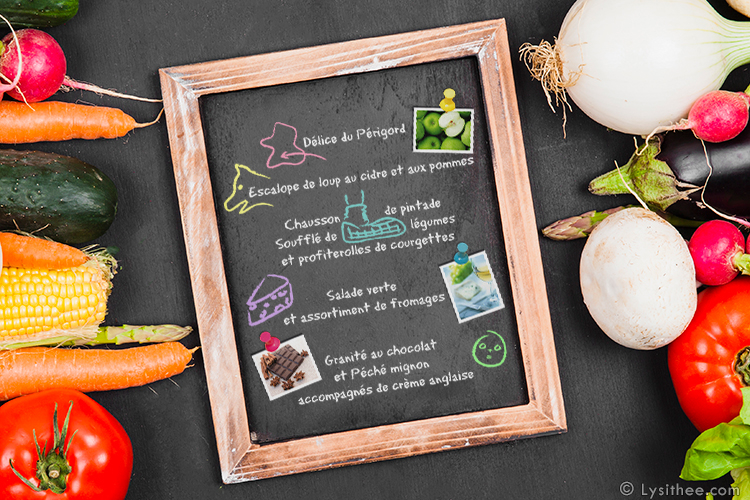 Délice du Périgord
Escalope de loup au cidre et aux pommes
Chausson de pintade
Soufflé de légumes
et profiterolles de courgettes
Salade verte
et assortiment de fromages
Granité au chocolat
et Péché mignon
accompagnés de crème anglaise
© Lysithee.com